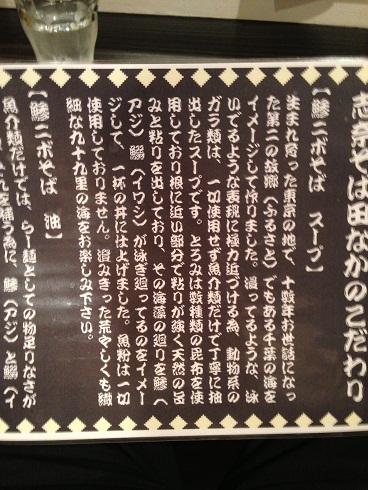 志奈そば田なかのこだわり
【鯵ニボそば　スープ】
生まれ育った東京の地で、十数年お世話になっ
た第二の故郷（ふるさと）でもある千葉の海を
イメージして作りました。濁ってるような、泳
いでるような表現に極力近づける為、動物系の
ガラ類は、一切使用せず魚介類だけで丁寧に抽
出したスープです。とろみは数種類の昆布を使
用しており根に近い部分で粘りが強く天然の旨
みと粘りを出しており、その海藻の廻りを鯵（
アジ）鰯（イワシ）が泳ぎ廻ってるのをイメー
ジして、一杯の丼に仕上げました。魚粉は一切
使用しておりません。澄みきった荒々しくも繊
細な九十九里の海をお楽しみ下さい。
【鯵ニボそば　油】
魚介類だけでは、らー麺としての物足りなさが
を補う為に、鯵（アジ）と鰯（イ